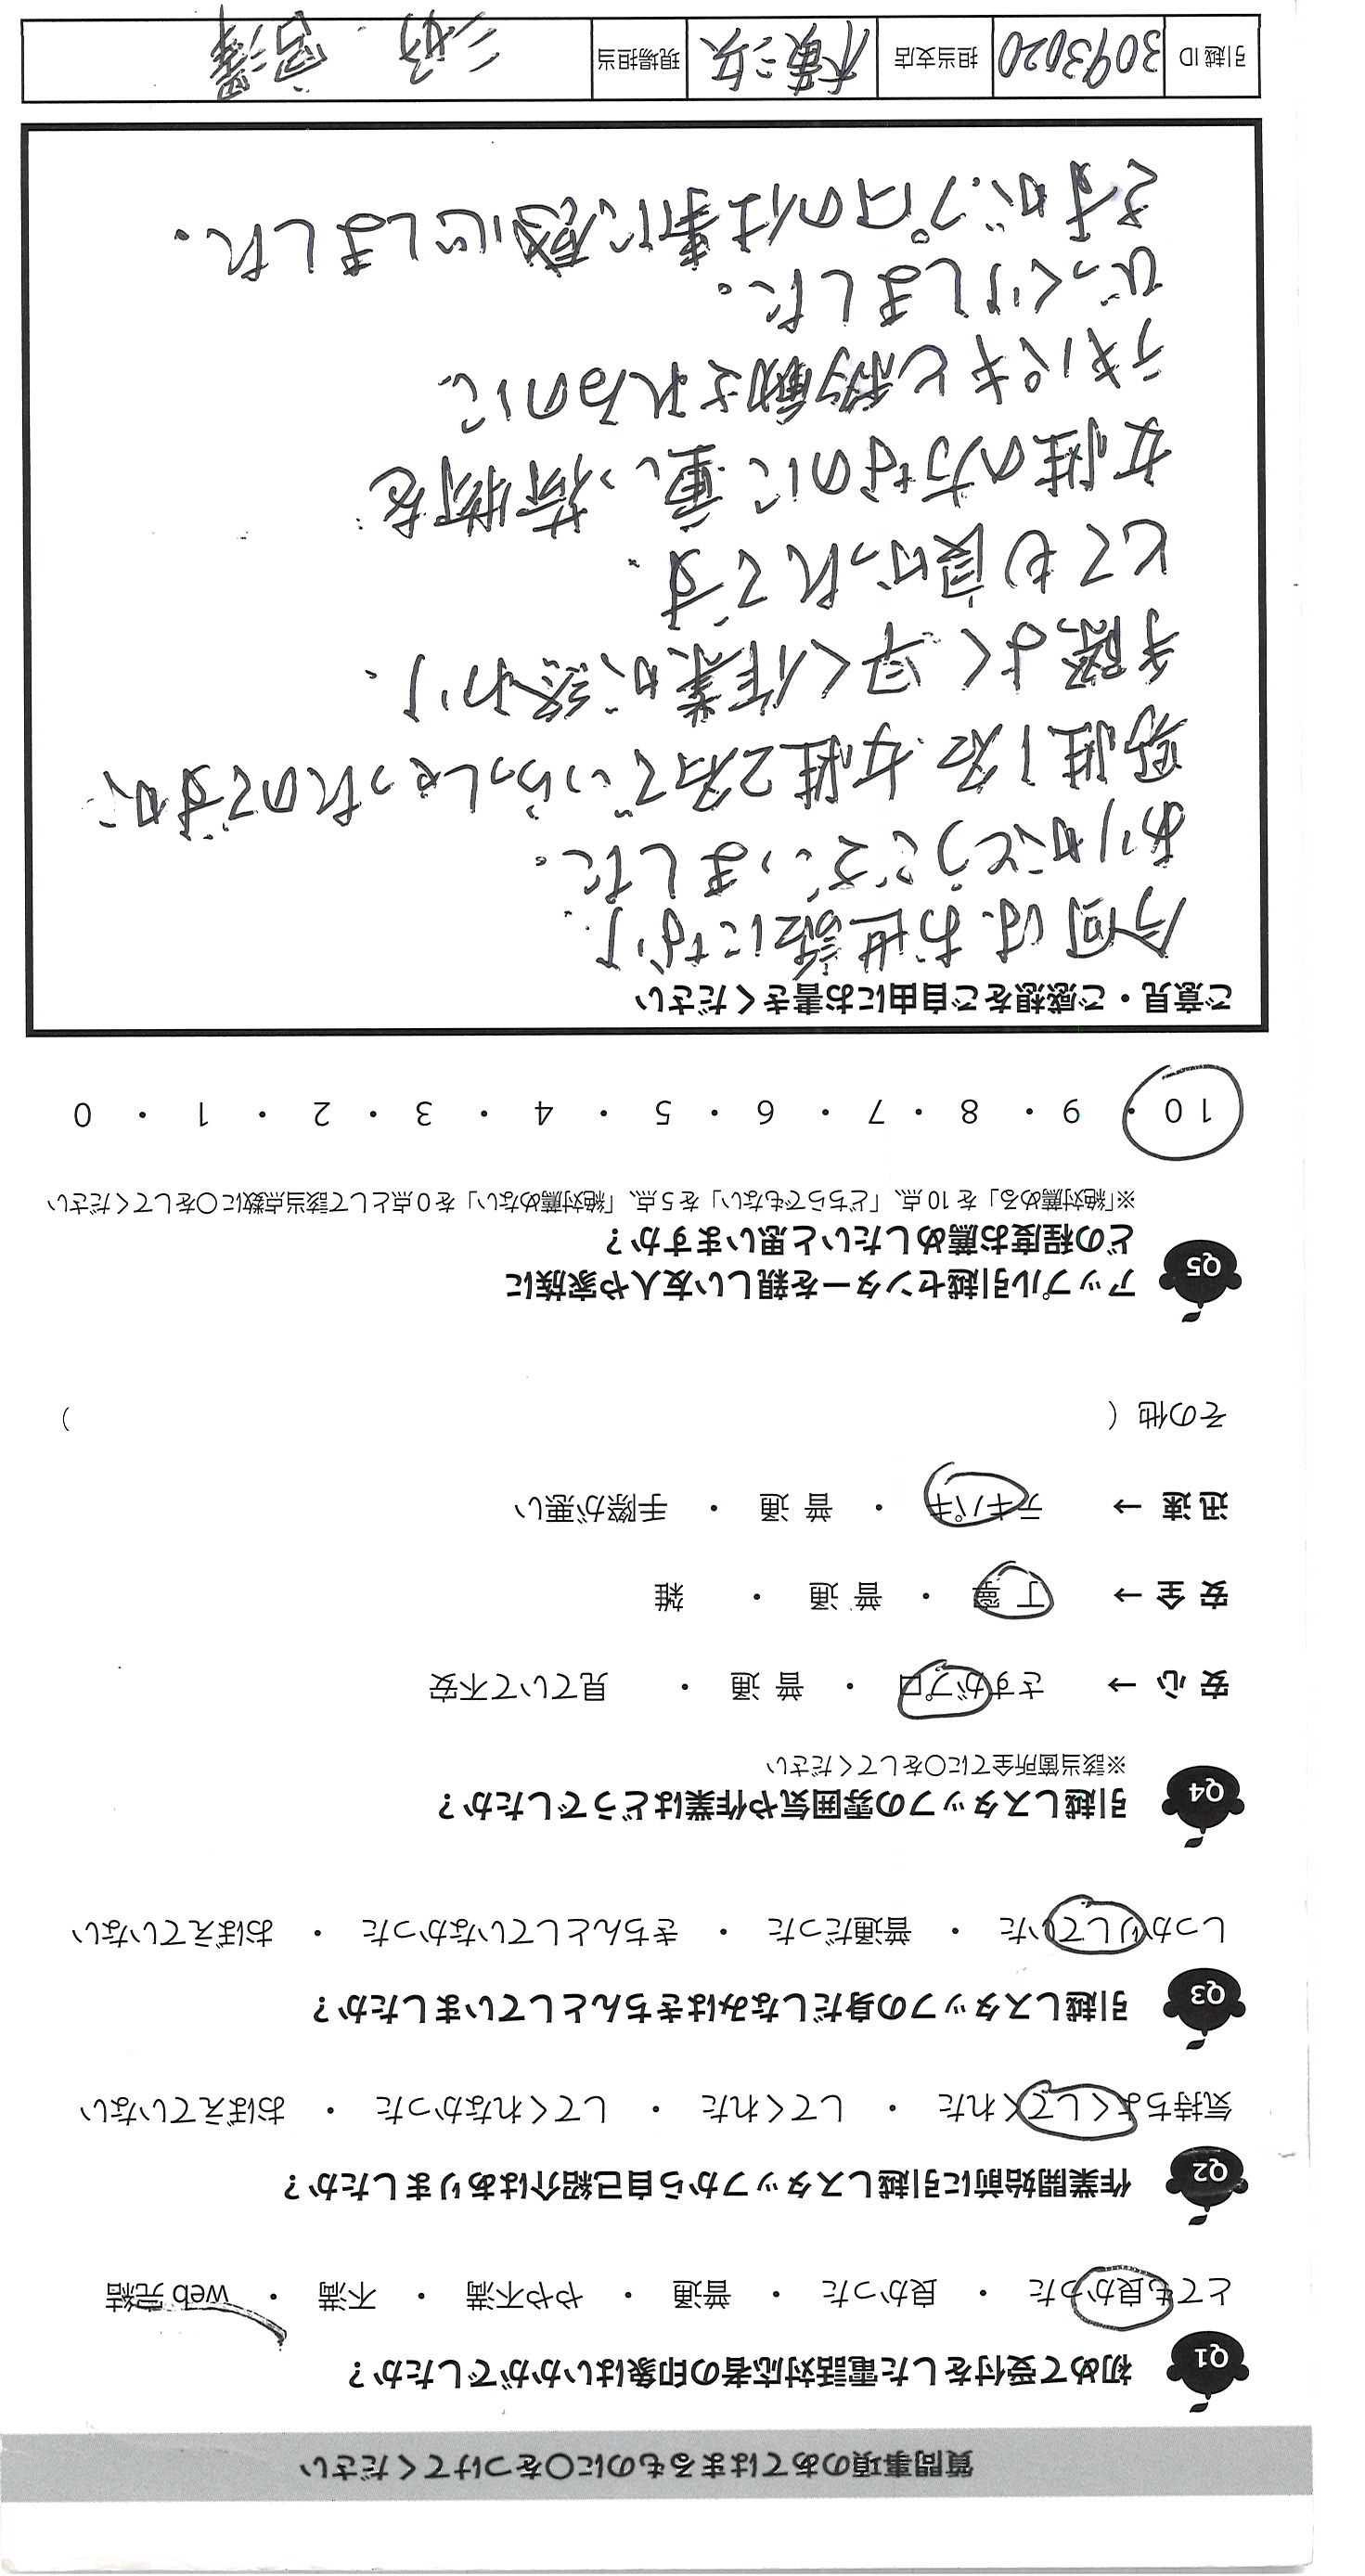 質問事項のあてはまるものに○をつけてください
Q1 初めて受付をした電話対応者の印象はいかがでしたか？
とても良かった ・ 良かった ・ 普通 ・ やや不満 ・ 不満 ・ web完結
Q2 作業開始前に引越しスタッフから自己紹介はありましたか？
気持ちよくしてくれた ・ してくれた ・ してくれなかった ・ おぼえていない
Q3 引越しスタッフの身だしなみはきちんとしていましたか？
しっかりしていた ・ 普通だった ・ きちんとしていなかった ・ おぼえていない
Q4 引越しスタッフの雰囲気や作業はどうでしたか？
※該当箇所全てに○をしてください
安心→ さすがプロ ・ 普通 ・ 見ていて不安
安全→ 丁寧 ・ 普通 ・ 雑
迅速→ テキパキ ・ 普通 ・ 手際が悪い
その他（ ）
Q5 アップル引越センターを親しい友人や家族に
どの程度お薦めしたいと思いますか？
※「絶対薦める」を10点、「どちらでもない」を5点、「絶対薦めない」を0点として該当点数に○をしてください
10 ・ 9 ・ 8 ・ 7 ・ 6 ・ 5 ・ 4 ・ 3 ・ 2 ・ 1 ・ 0
ご意見・ご感想をご自由にお書きください
今回はお世話になり、
ありがとうございました。
男性1名、女性2名でいらっしゃったのですが、
手際よく早く作業が終わり、
とても良かったです。
女性の方なのに重い荷物を
テキパキと移動されるのに
びっくりしました。
さすが、プロの仕事に感心しました。
引越ID 3093020 担当支店 横浜 現場担当 三好、宮澤